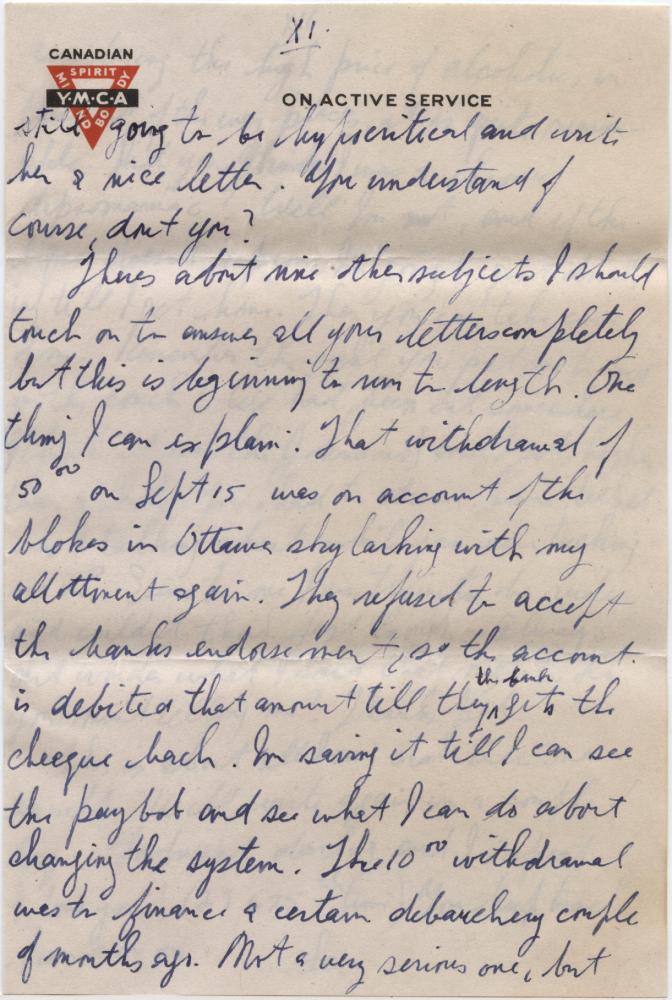 XI.
CANADIAN
SPIRIT
MIND
BODY
Y·M·C·A
ON ACTIVE SERVICE
still going to be hypocritical and write
her a nice letter. You understand of
course, dont you?
Theres about nine other subjects I should
touch on to answer all your letters completely
but this is beginning to run to length. One
thing I can explain. That withdrawal of
50⁰⁰ on Sept 15 was on account of the
blokes in Ottawa skylarking with my
allottment again. They refused to accept
the banks endorsement, so the account.
is debited that amount till they the bank gets the
cheeque back. Im saving it till I can see
the paybob and see what I can do about
changing the system. The 10⁰⁰ withdrawal
was to finance a certain debauchery couple
of months ago. Not a very serious one, but